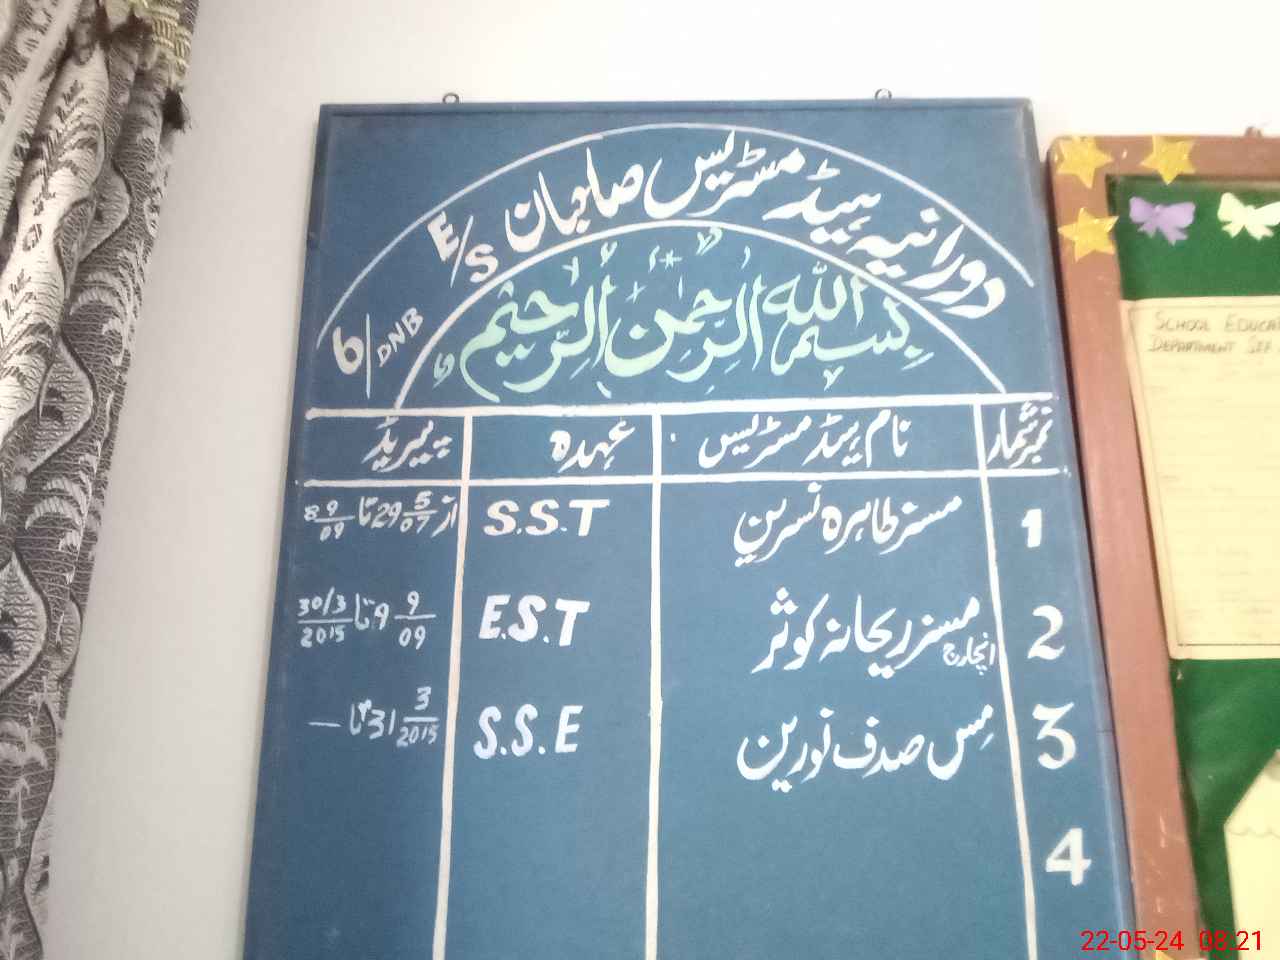 دورانیہ ہیڈ مسٹریس صاحبان E/S
6/DNB
بسم اللہ الرحمن الرحیم
نمبر شمار نام ہیڈ مسٹریس عہدہ پیریڈ
1 مسز طاہرہ نسرین S.S.T از 29 5/07 تا 8 9/09
2 مسز ریحانہ کوثر انچارج E.S.T 9 9/09 تا 30/3/2015
3 مس صدف نورین S.S.E 31 3/2015 تا —
4
SCHOOL EDUCA
DEPARTMENT
22-05-24 08:21